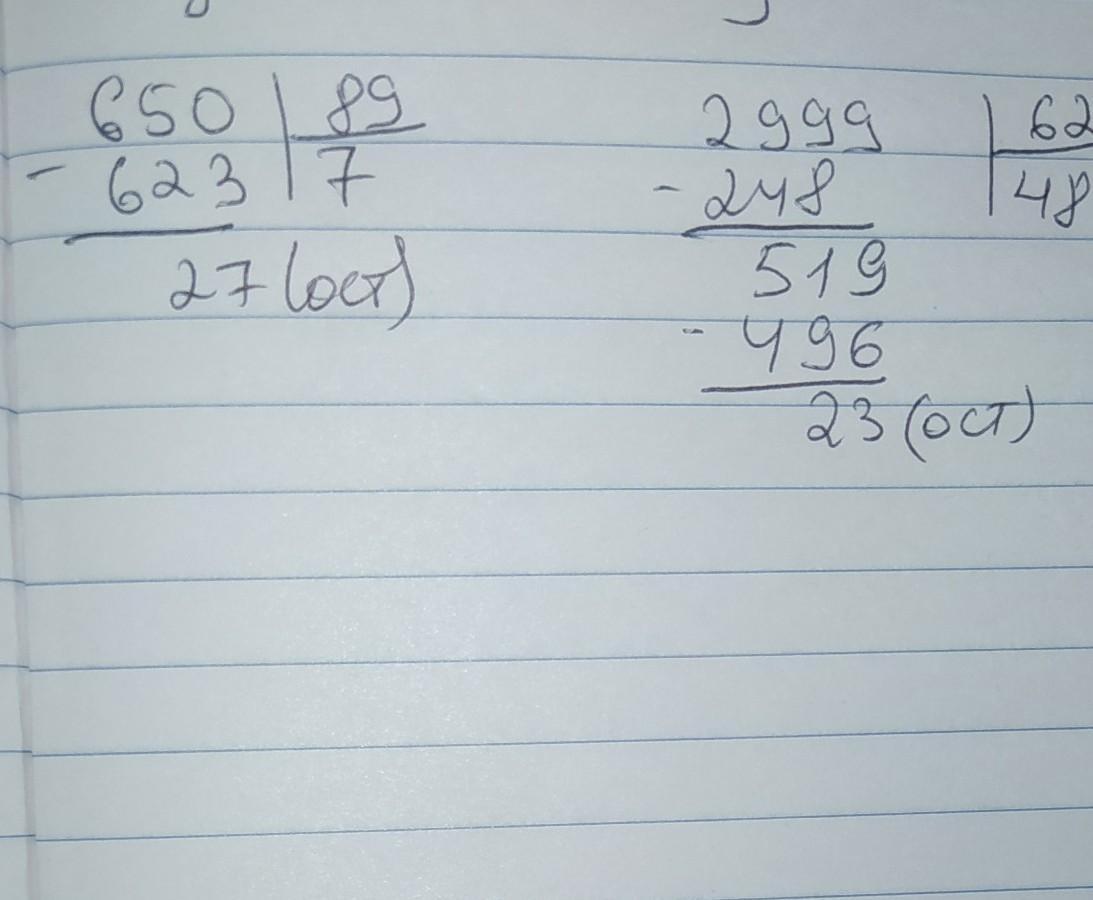 650 | 89
- 623 | 7
27 (ост)
2999 | 62
- 248 | 48
519
- 496
23 (ост)